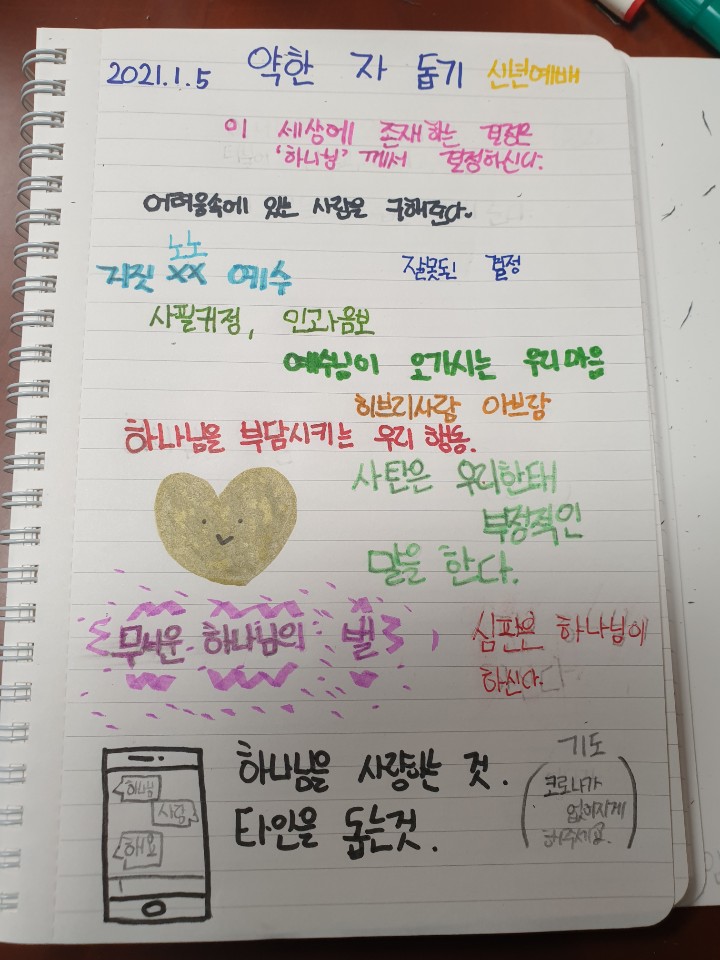 2021.1.5 약한 자 돕기 신년예배
이 세상에 존재하는 결정은
'하나님' 께서 결정하신다.
어려움속에 있는 사람은 구해준다.
노노
거짓 XX 예수 잘못된 결정
사필귀정, 인과응보
예수님이 오가시는 우리마음
히브리사람 아브람
하나님을 부담시키는 우리 행동.
사탄은 우리한테
부정적인
말을 한다.
무서운 하나님의 벌
심판은 하나님에
하신다.
하나님
사랑
해요
하나님을 사랑하는 것.
타인을 돕는것.
기도
코로나가
없어지게
해주세요.